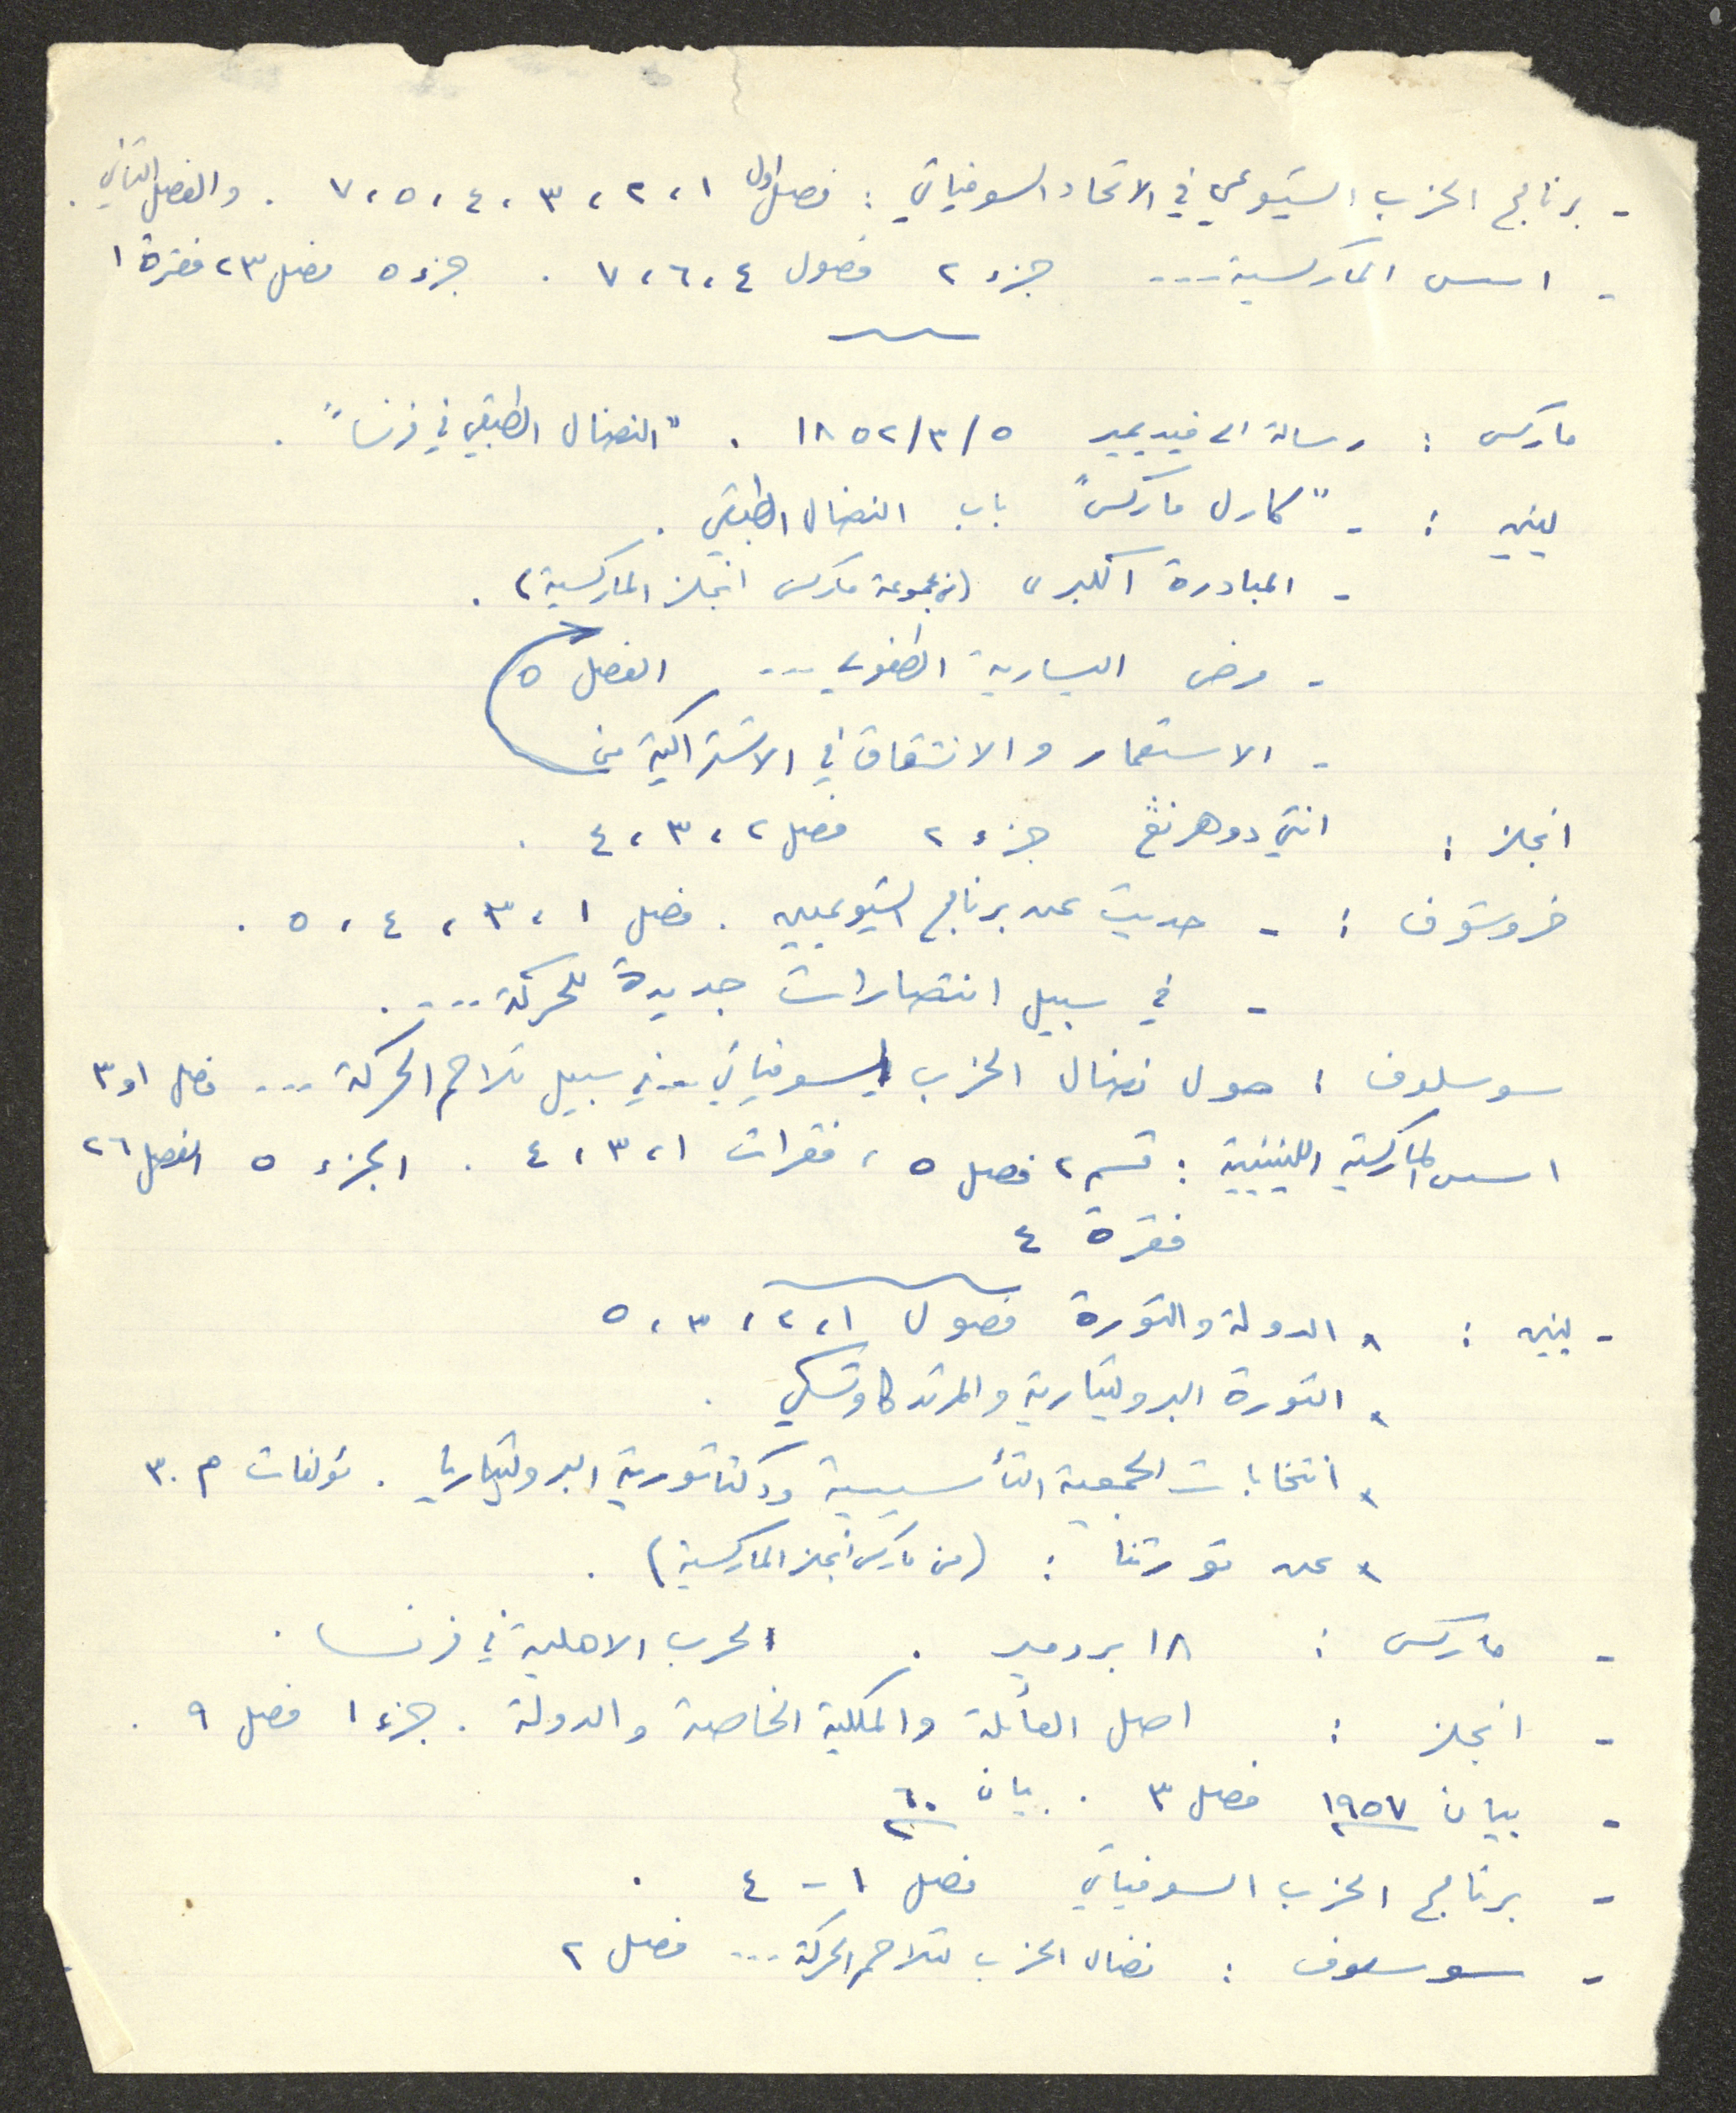 - برنامج الحزب الشيوعي في الاتحاد السوفياتي : فصل اول ١ ، ٢ ، ٣ ، ٤ ، ٥ ، ٧ . والفصل الثاني .
- اسس الماركسية --- جزء ٢ فصول ٤ ، ٦ ، ٧ . جزء ٥ فصل ٢٣ فقرة ١
ماركس : رسالة الى فيديمير ٥/٣/١٨٥٢ . "النضال الطبقي في فرنسا" .
لينين : - "كارل ماركس" باب النضال الطبقي .
- المبادرة الكبرى (من مجموعة ماركس انجلز الماركسية) .
- مرض اليسارية الطفولي --- الفصل ٥
- الاستعمار والانشقاق في الاشتراكية من
انجلز : انتي دوهرنغ جزء ٢ فصل ٢ ، ٣ ، ٤ .
خروشوف : - حديث عن برنامج الشيوعيين . فصل ١ ، ٣ ، ٤ ، ٥ .
- في سبيل انتصارات جديدة للحركة ---- .
سوسلوف : حول نضال الحزب السوفياتي -- في سبيل تلاحم الحركة --- فصل ١ و ٣
اسس الماركسية اللينينية : قسم ٢ فصل ٥ ، فقرات ١ ، ٣ ، ٤ . الجزء ٥ الفصل ٢٦
فقرة ٤
- لينين : × الدولة والثورة فصول ١ ، ٢ ، ٣ ، ٥
× الثورة البروليتارية والمرتد كاوتسكي .
× انتخابات الجمعية التأسيسية ودكتاتورية البروليتاريا . مؤلفات م ٣٠
× عن ثورتنا : (من ماركس انجلز الماركسية) .
- ماركس : ١٨ برومير . الحرب الاهلية في فرنسا .
- انجلز : اصل العائلة والملكية الخاصة والدولة . جزء ١ فصل ٩ .
- بيان ١٩٥٧ فصل ٣ . بيان ٦٠
- برنامج الحزب السوفياتي فصل ١ - ٤ .
- سوسلوف : نضال الحزب لتلاحم الحركة --- فصل ٢